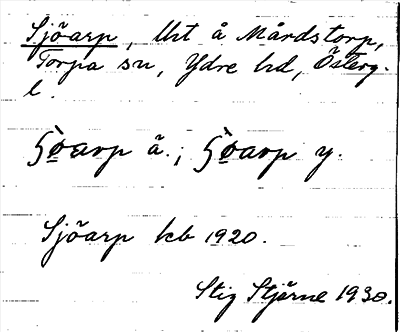 Sjöarp, lht å Mårdstorp,
Torpa sn, Ydre hd, Österg.
l.
ʃòarp ä.; ʃòarp y.
Sjöarp kb 1920.
Stig Stjärne 1930.